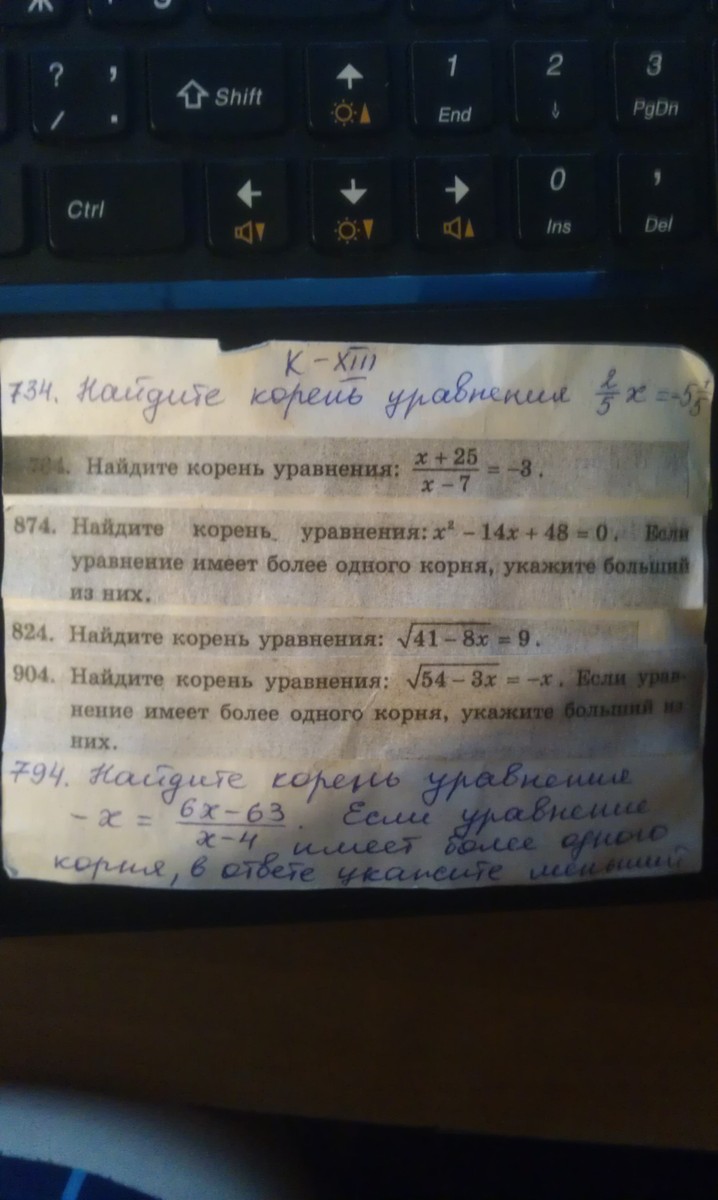 ? ,
/ .
Shift
1
End
2
3
PgDn
Ctrl
0
Ins
,
Del
К – XIII
734. Найдите корень уравнения 2/5 x = -5 1/5
784. Найдите корень уравнения: (x + 25)/(x – 7) = –3.
874. Найдите корень уравнения: x² – 14x + 48 = 0. Если
уравнение имеет более одного корня, укажите больший
из них.
824. Найдите корень уравнения: √(41 – 8x) = 9.
904. Найдите корень уравнения: √(54 – 3x) = –x. Если урав-
нение имеет более одного корня, укажите больший из
них.
794. Найдите корень уравнения
-x = (6x-63)/(x-4). Если уравнение
имеет более одного
корня, в ответе укажите меньший